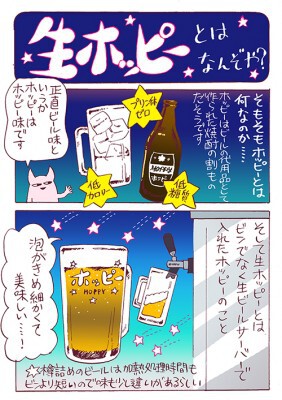 生ホッピーとは
なんぞや?
そもそもホッピーとは
何なのか…
ホッピーはビールの代用品として
作られた焼酎の割もの
だそうです
プリン体
ゼロ
低
カロリー
低
糖質
正直ビール味と
いうか
ホッピーは
ホッピー味です
そして生ホッピーとは
ビンでなく生ビールサーバーで
入れたホッピーのこと
ホッピー
HOPPY
泡がきめ細かくて
美味しい…!
☆樽詰めのビールは加熱処理時間も
ビンより短いので味も少し違いがあるらしい